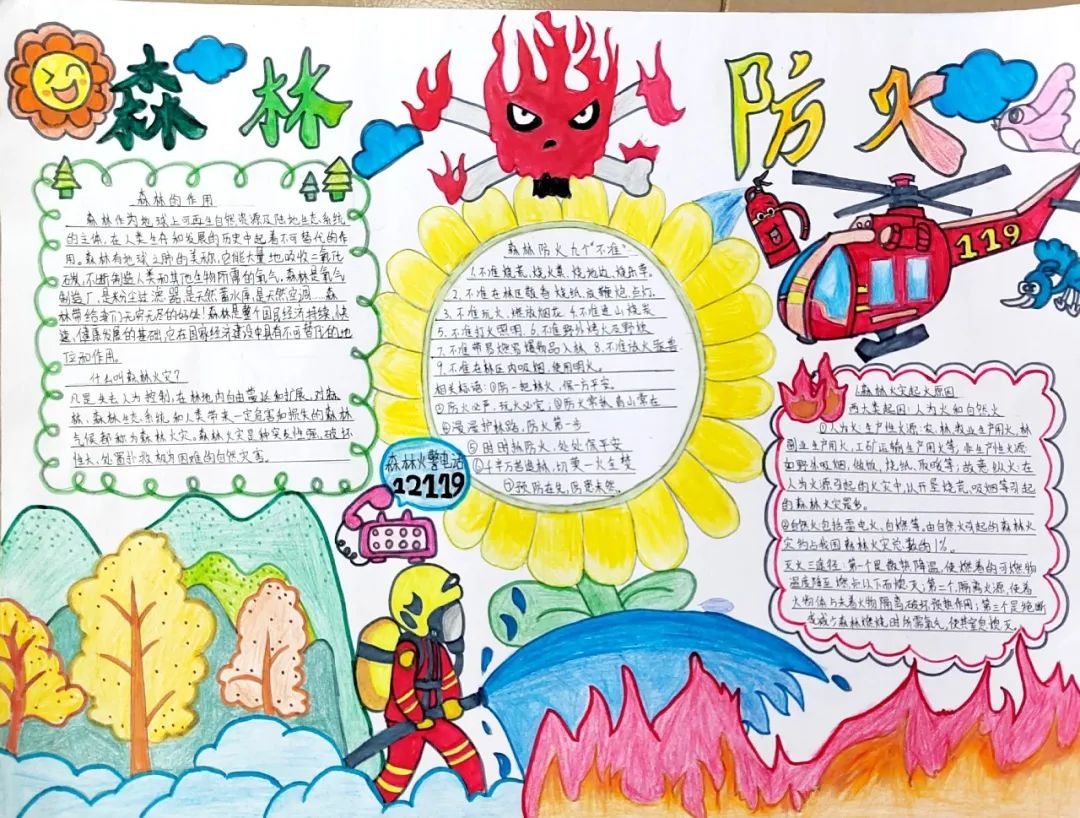 森林
防火
森林的作用
森林作为地球上可再生自然资源及陆地生态系统
的主体,在人类生存和发展的历史中起着不可替代的作
用。森林有地球之肺的美称,它能大量地吸收二氧化
碳,不断制造人类和其他生物所需的氧气。森林是氧气
制造厂,是粉尘过滤器,是天然蓄水库,是天然空调…森
林带给我们无穷无尽的好处!森林是整个国民经济持续、快
速、健康发展的基础,它在国家经济建设中具有不可替代的地
位和作用。
什么叫森林火灾?
凡是失去人为控制,在林地内自由蔓延和扩展,对森
林、森林生态系统和人类带来一定危害和损失的森林
气候都称为森林火灾。森林火灾是种突发性强、破坏
性大、处置扑救极为困难的自然灾害。
森林防火九个"不准"
1.不准烧荒、烧火粪、烧地边、烧杂草。
2.不准在林区敬香烧纸、放鞭炮、点灯。
3.不准玩火、燃放烟花 4.不准进山烧炭
5.不准打火照明. 6.不准野外烤火及野炊
7.不准带易燃易爆物品入林 8.不准依火
9.不准在林区内吸烟、使用明火。
相关标语:①防一起林火,保一方平安。
②防火必严,玩火必究;③防火常執青山常在
④漫漫护林路,防火第一步
⑤时时执防火,处处保平安
⑥千年万苦造林,切莫一火全焚
⑦预防在先,防患未然。
119
森林火警电话
12119
1.森林火灾起火原因
两大类起因:人为火和自然火
①人为火:生产性火源:农、林、牧业生产用火,林
副业生产用火,工矿运输生产用火等;非生产性火源:
如野外吸烟,做饭,烧纸,取暖等;故意纵火:在
人为火源引起的火灾中,以开垦烧荒、吸烟等引起
的森林火灾最多。
②自然火:包括雷电火,自燃等。由自然火引起的森林火
灾约占我国森林火灾总数的1%。
灭火三途径:第一个是散热降温,使燃着的可燃物
温度降至燃点以下而熄灭;第二个,隔离火源,使着
火物体与未着火物隔离,破坏预热作用;第三个是绝断
或减少森林燃烧时所需氧气,使其窒息熄灭。